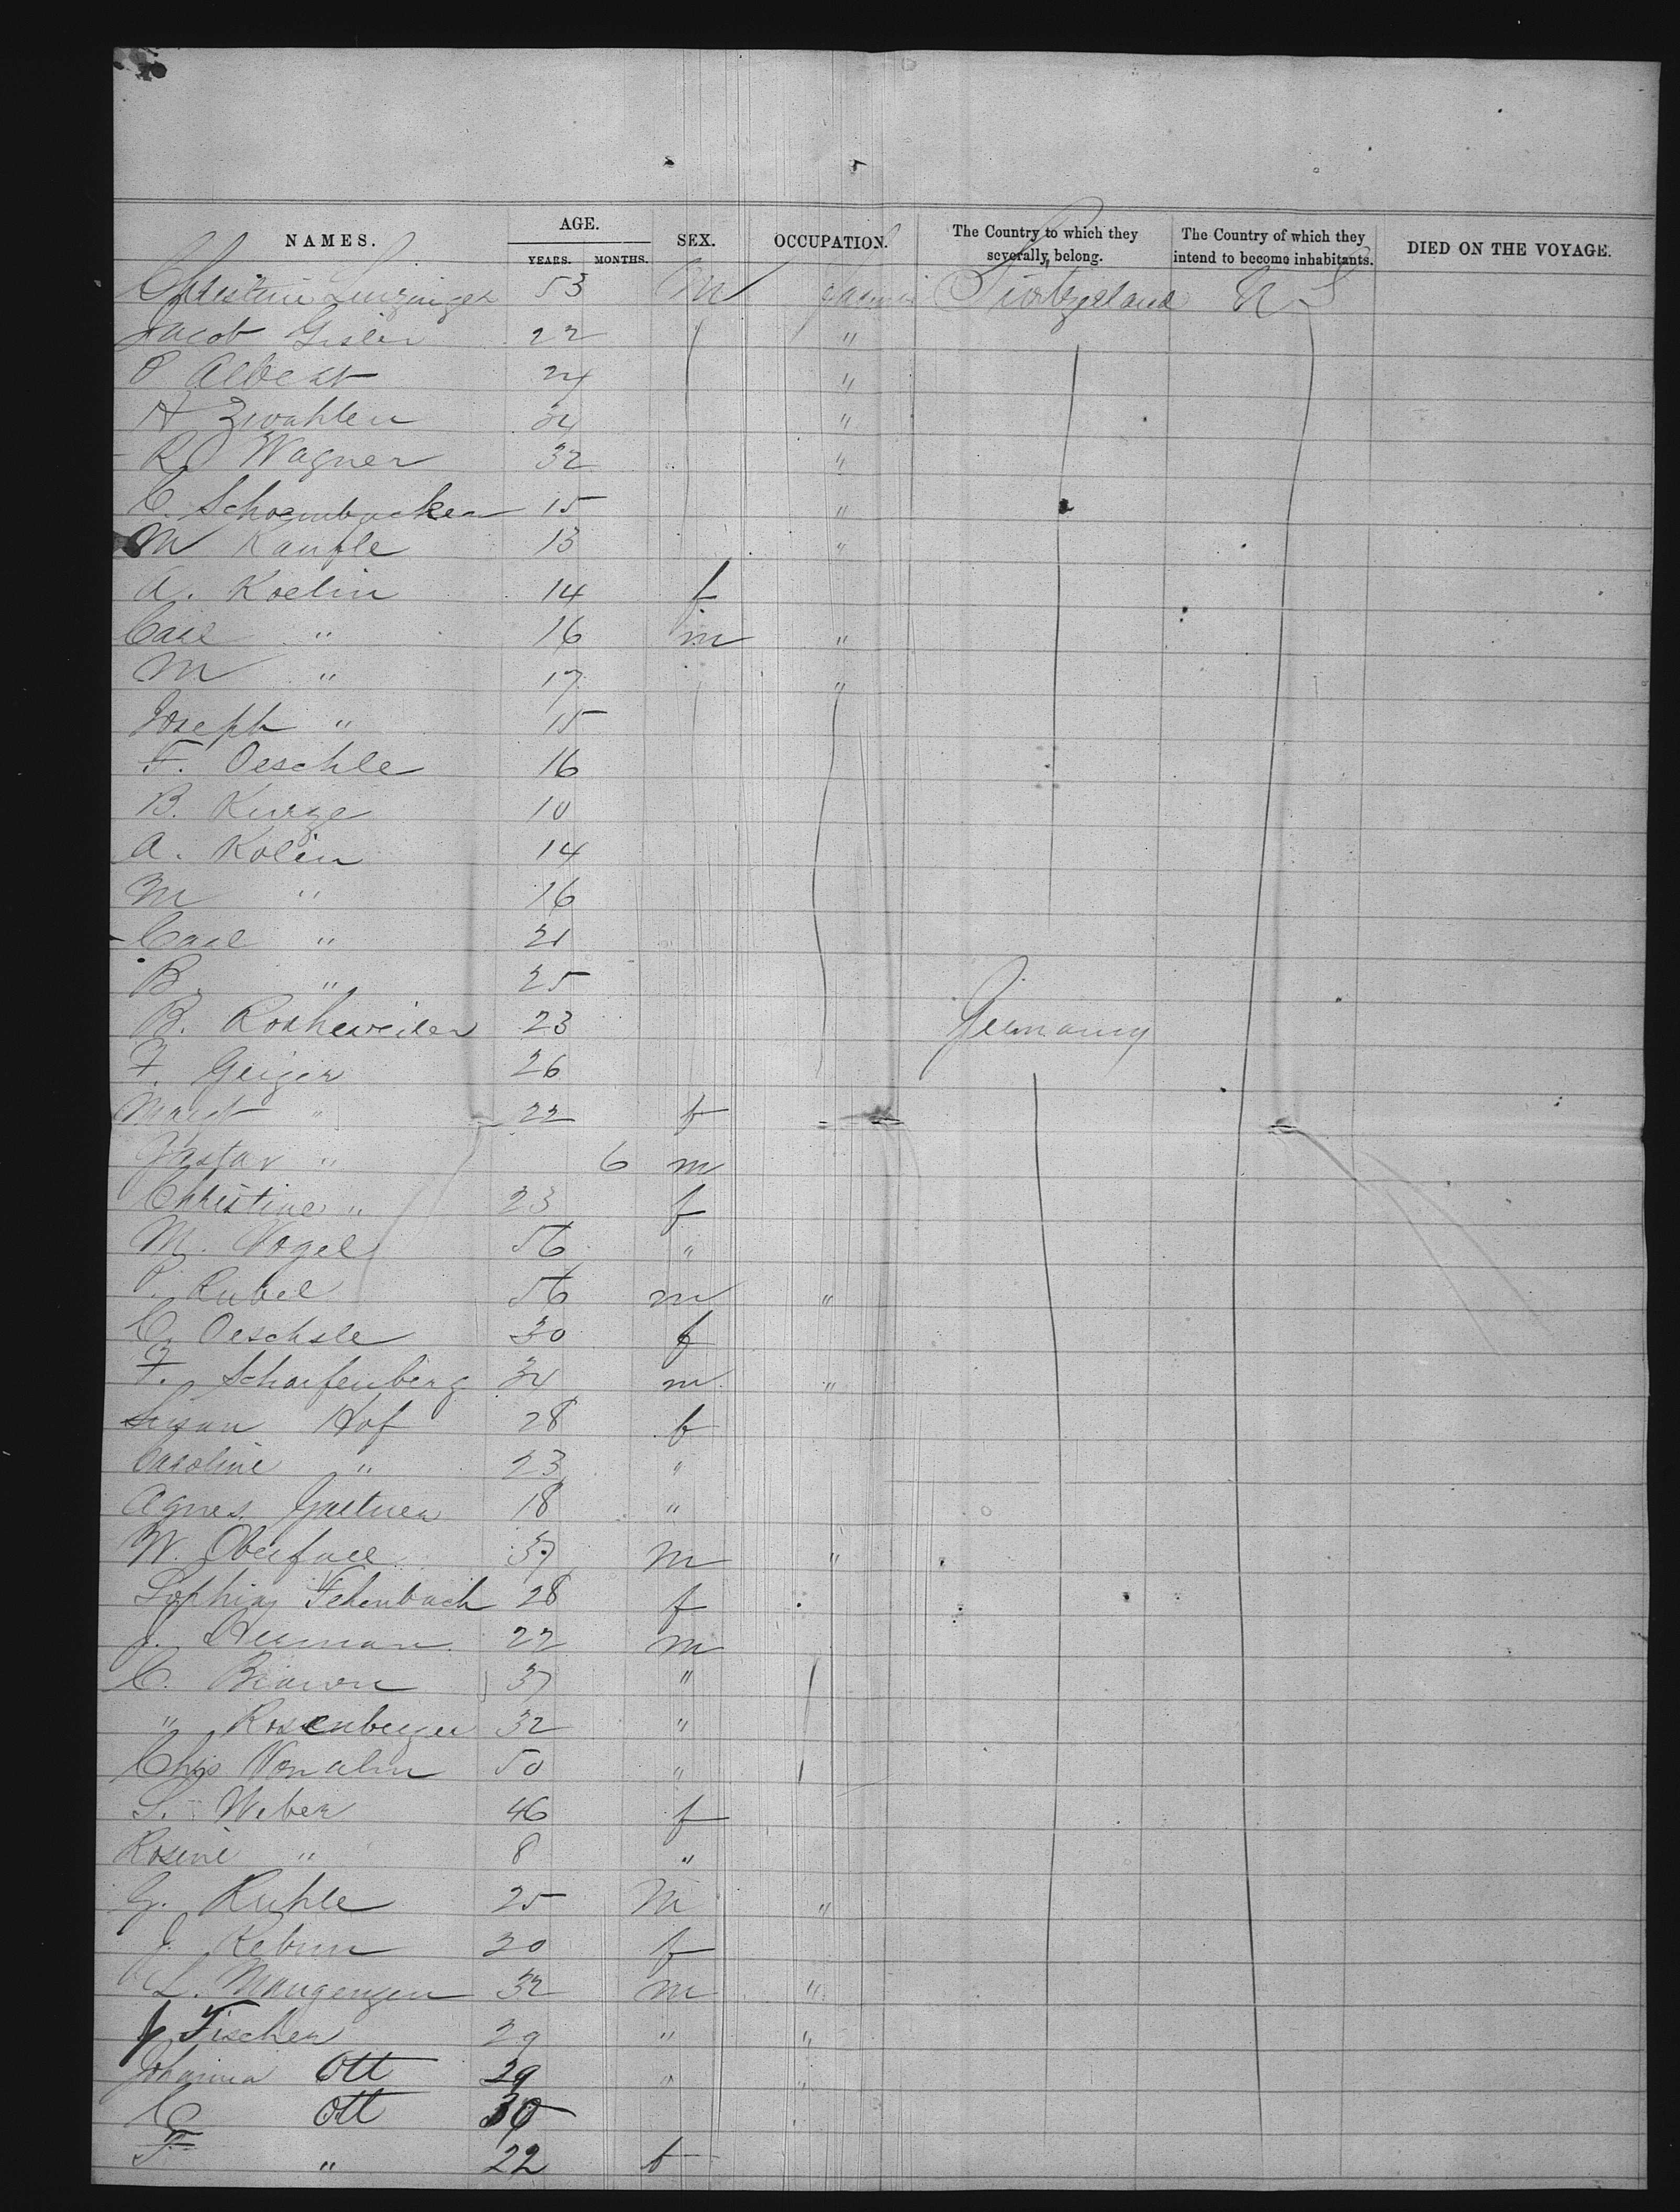 NAMES. AGE. SEX. OCCUPATION. The Country to which they severally, belong. The Country of which they intend to become inhabitants. DIED ON THE VOYAGE.
YEARS. MONTHS.
53 M Switzerland U S
Jacob Gisler 22 "
P Albert 24 "
A Zwahlen 24 "
R Wagner 32 "
C. 15 "
M Kaufle 13 "
A. Koelin 14 f
Carl " 16 m "
M " 17 "
Joseph " 15
F. Oeschle 16
B. Kurze 10
A. Kolin 14
M " 16
Carl " 21
B. " 25
B. 23 Germany
F. Geiger 26
" 22 f
Gustav " 6 m
Christine " 23 f
M. Vogel 56 "
P. Rubel 56 m "
C. Oeschsle 30 f
F. Scharfenberg 34 m "
Susan Hof 28 f
Caroline " 23 "
Agnes 18 "
W. 37 m "
Sophia Fehenbach 28 f
J. 22 m
C. 37 "
" Rosenberger 32 "
Chris 50 "
S. Weber 46 f
Rosine " 8 "
G. Ruhle 25 m "
J. 20 f
L. 32 m "
J Fischer 29 " "
Johanna Ott 29 "
C Ott 30
F " 22 f